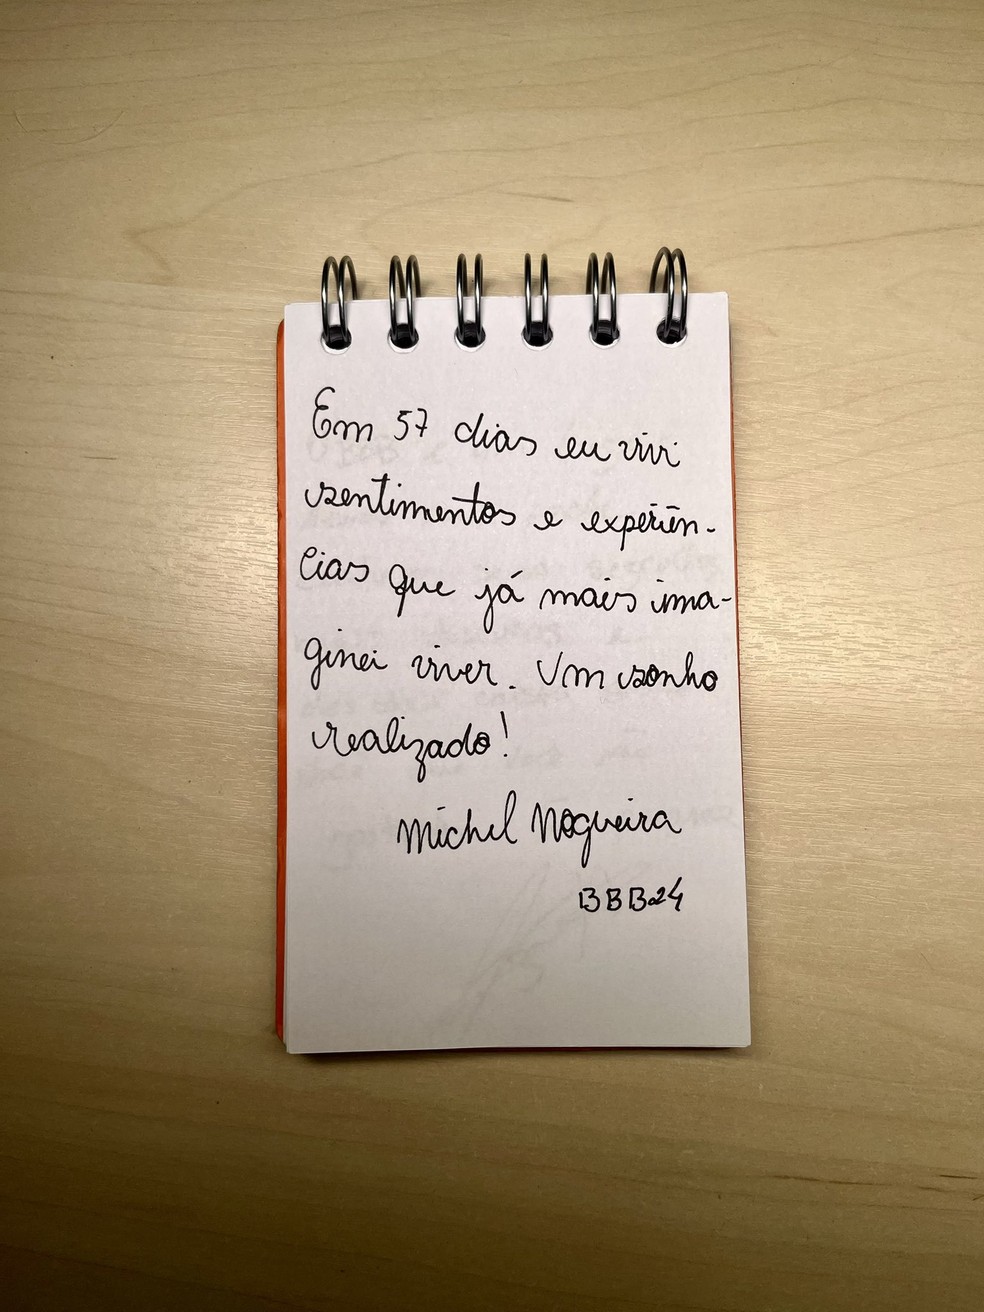 Em 57 dias eu vivi
sentimentos e experiên-
cias que já mais ima-
ginei viver. Um sonho
realizado!
Michel Nogueira
BBB24